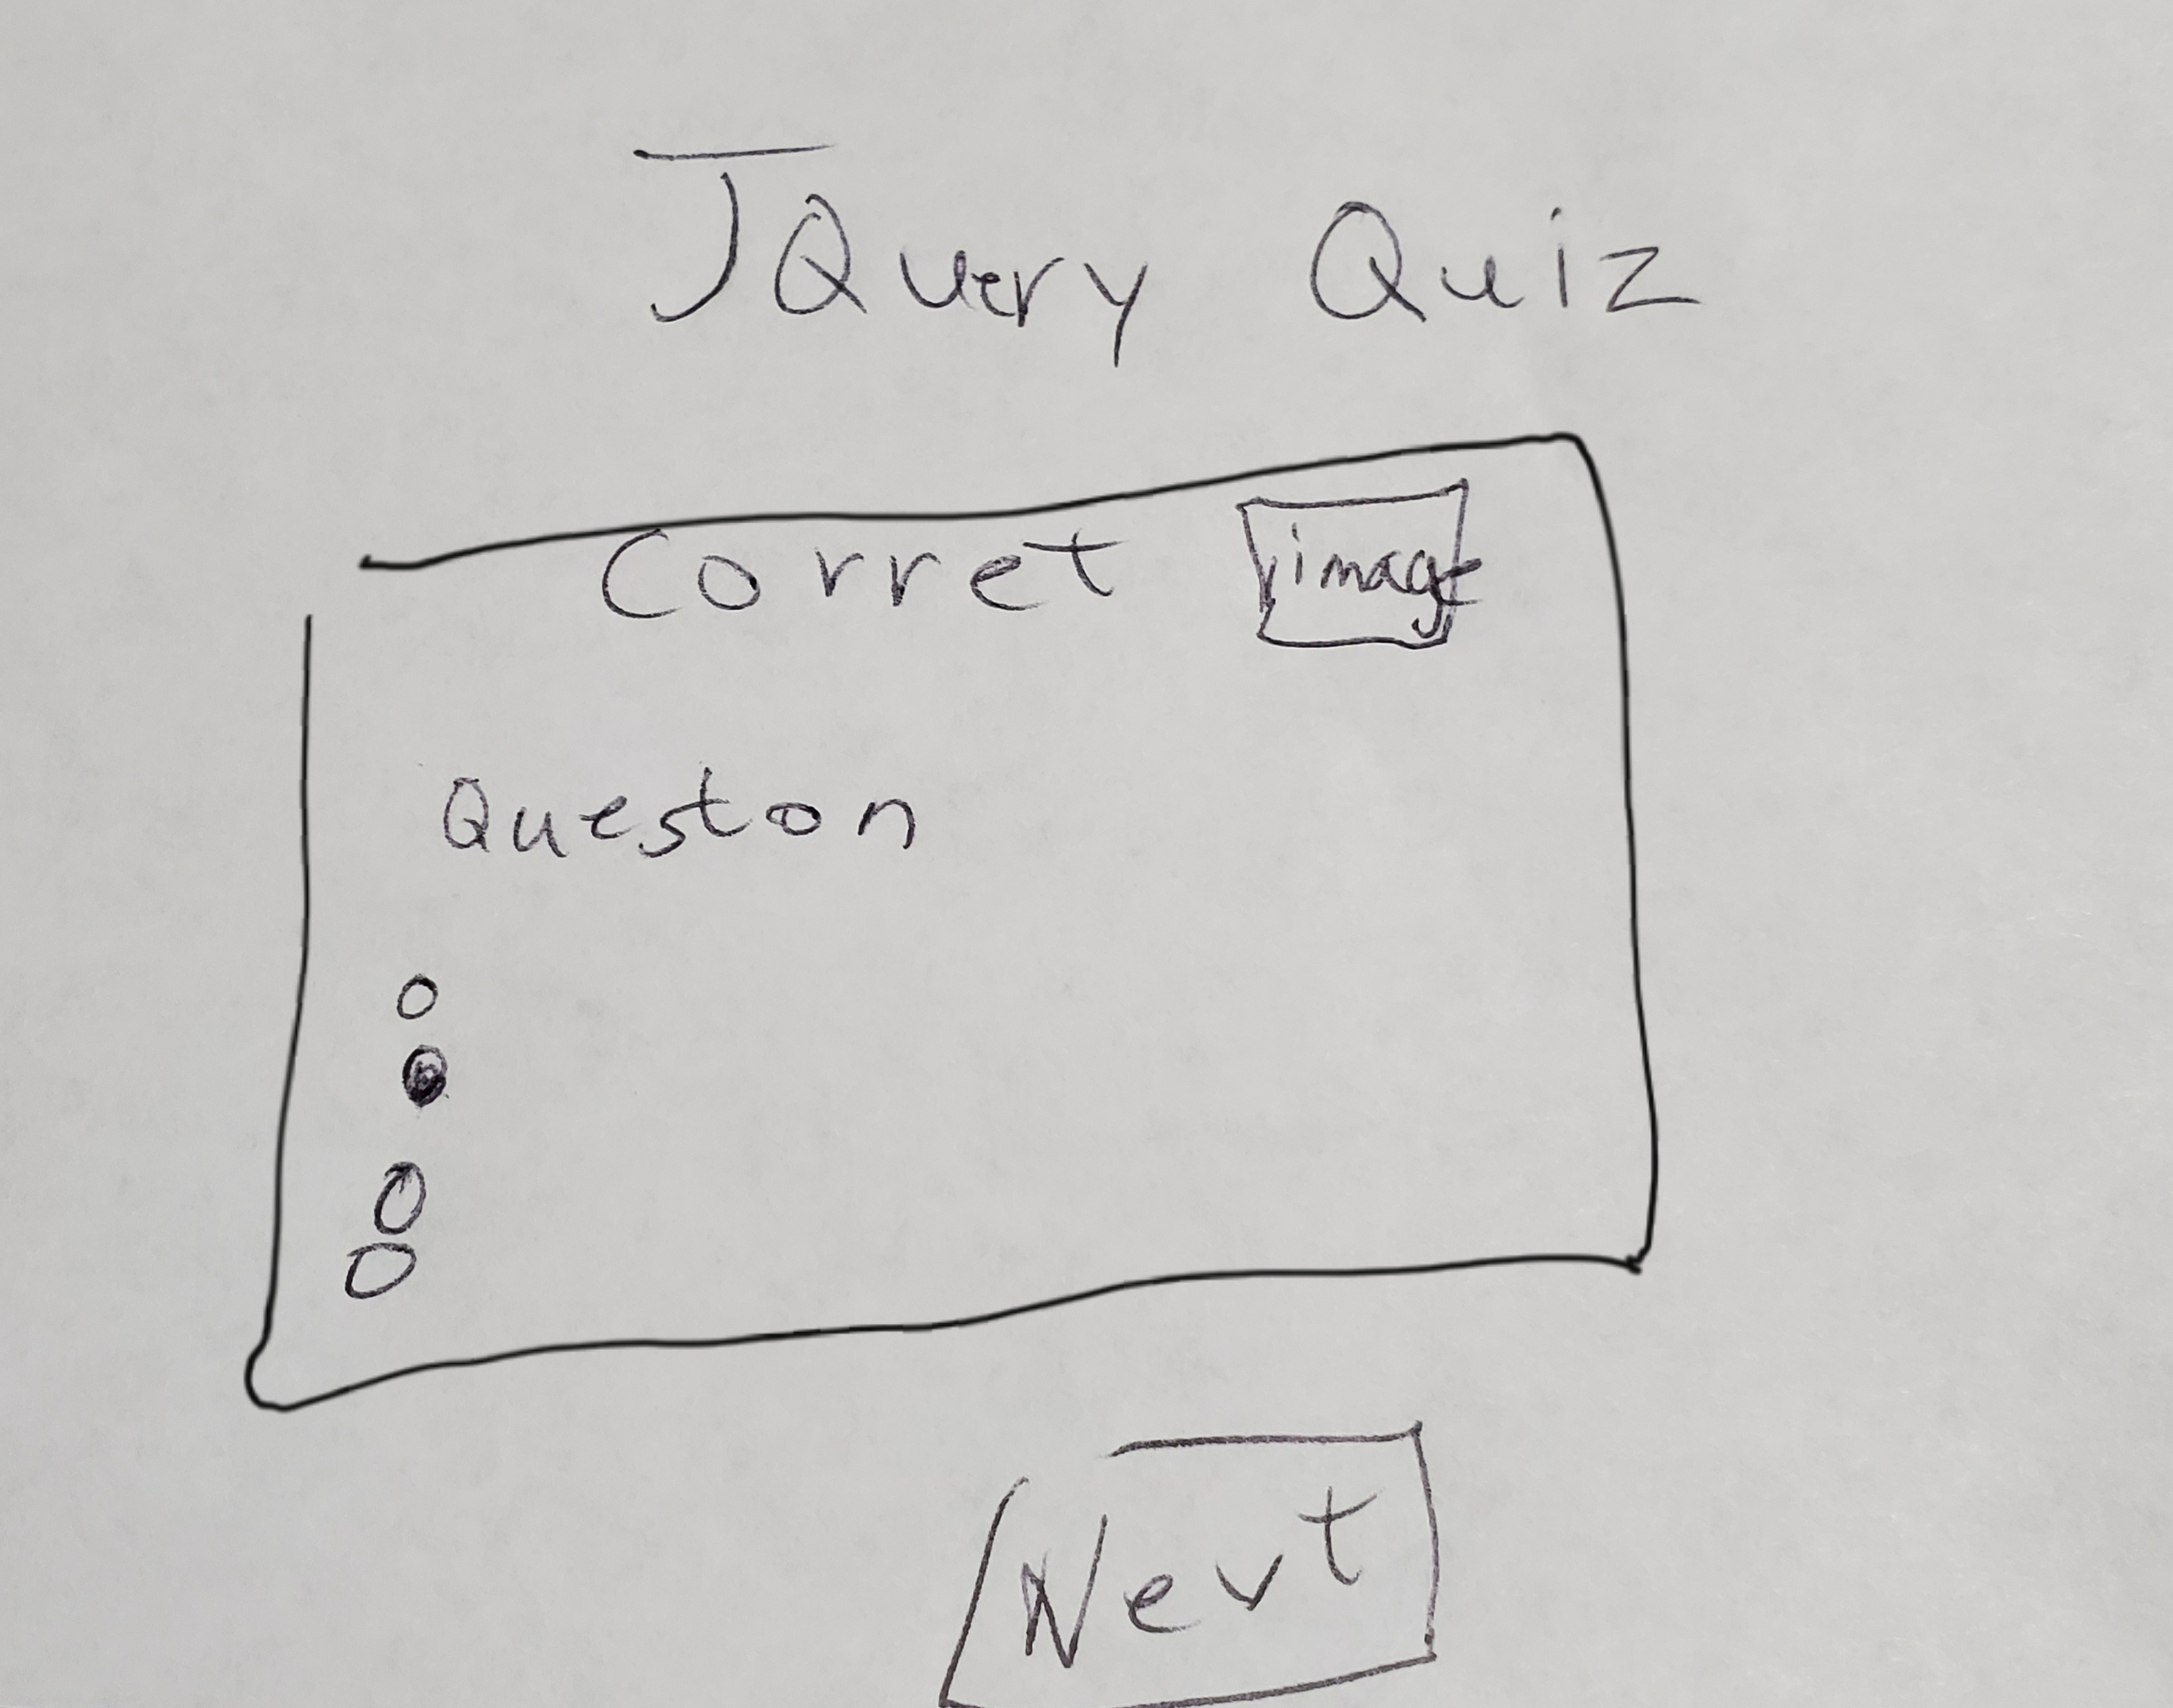 JQuery Quiz
Corret image
Queston
Nevt